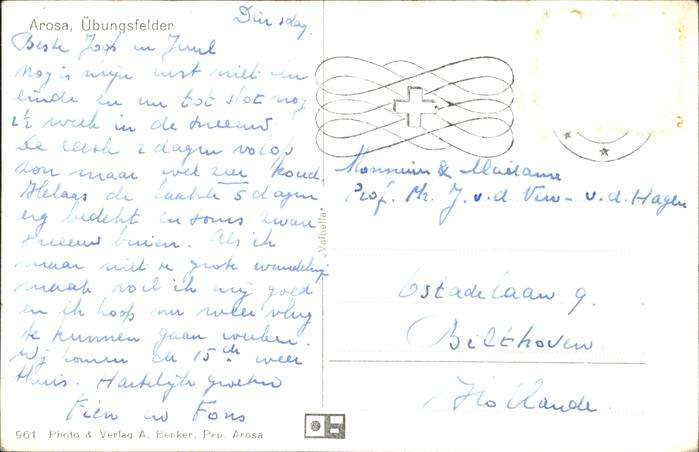 Arosa, Übungsfelder
Dinsdag.
Beste Joop en Juul
nog is mijn rust niet ten
einde en nu tot slot nog
2½ week in de sneeuw
De eerste 2 dagen volop
zon maar wel zeer koud
Helaas de laatste 5 dagen
erg bedekt en soms zware
sneeuw buien. Als ik
maar niet te grote wandeling
maak voel ik mij goed
en ik hoop nu weer vlug
te kunnen gaan werken.
Wij komen 15de weer
thuis. Hartelijke groeten
Fien en Fons
961 Photo & Verlag A. Benker, Pap. Arosa
„Valbella"
Monsieur & Madame
Prof. Mr. J. v. d. - v. d. Hagen
laan 9.
Bilthoven
Hollande.